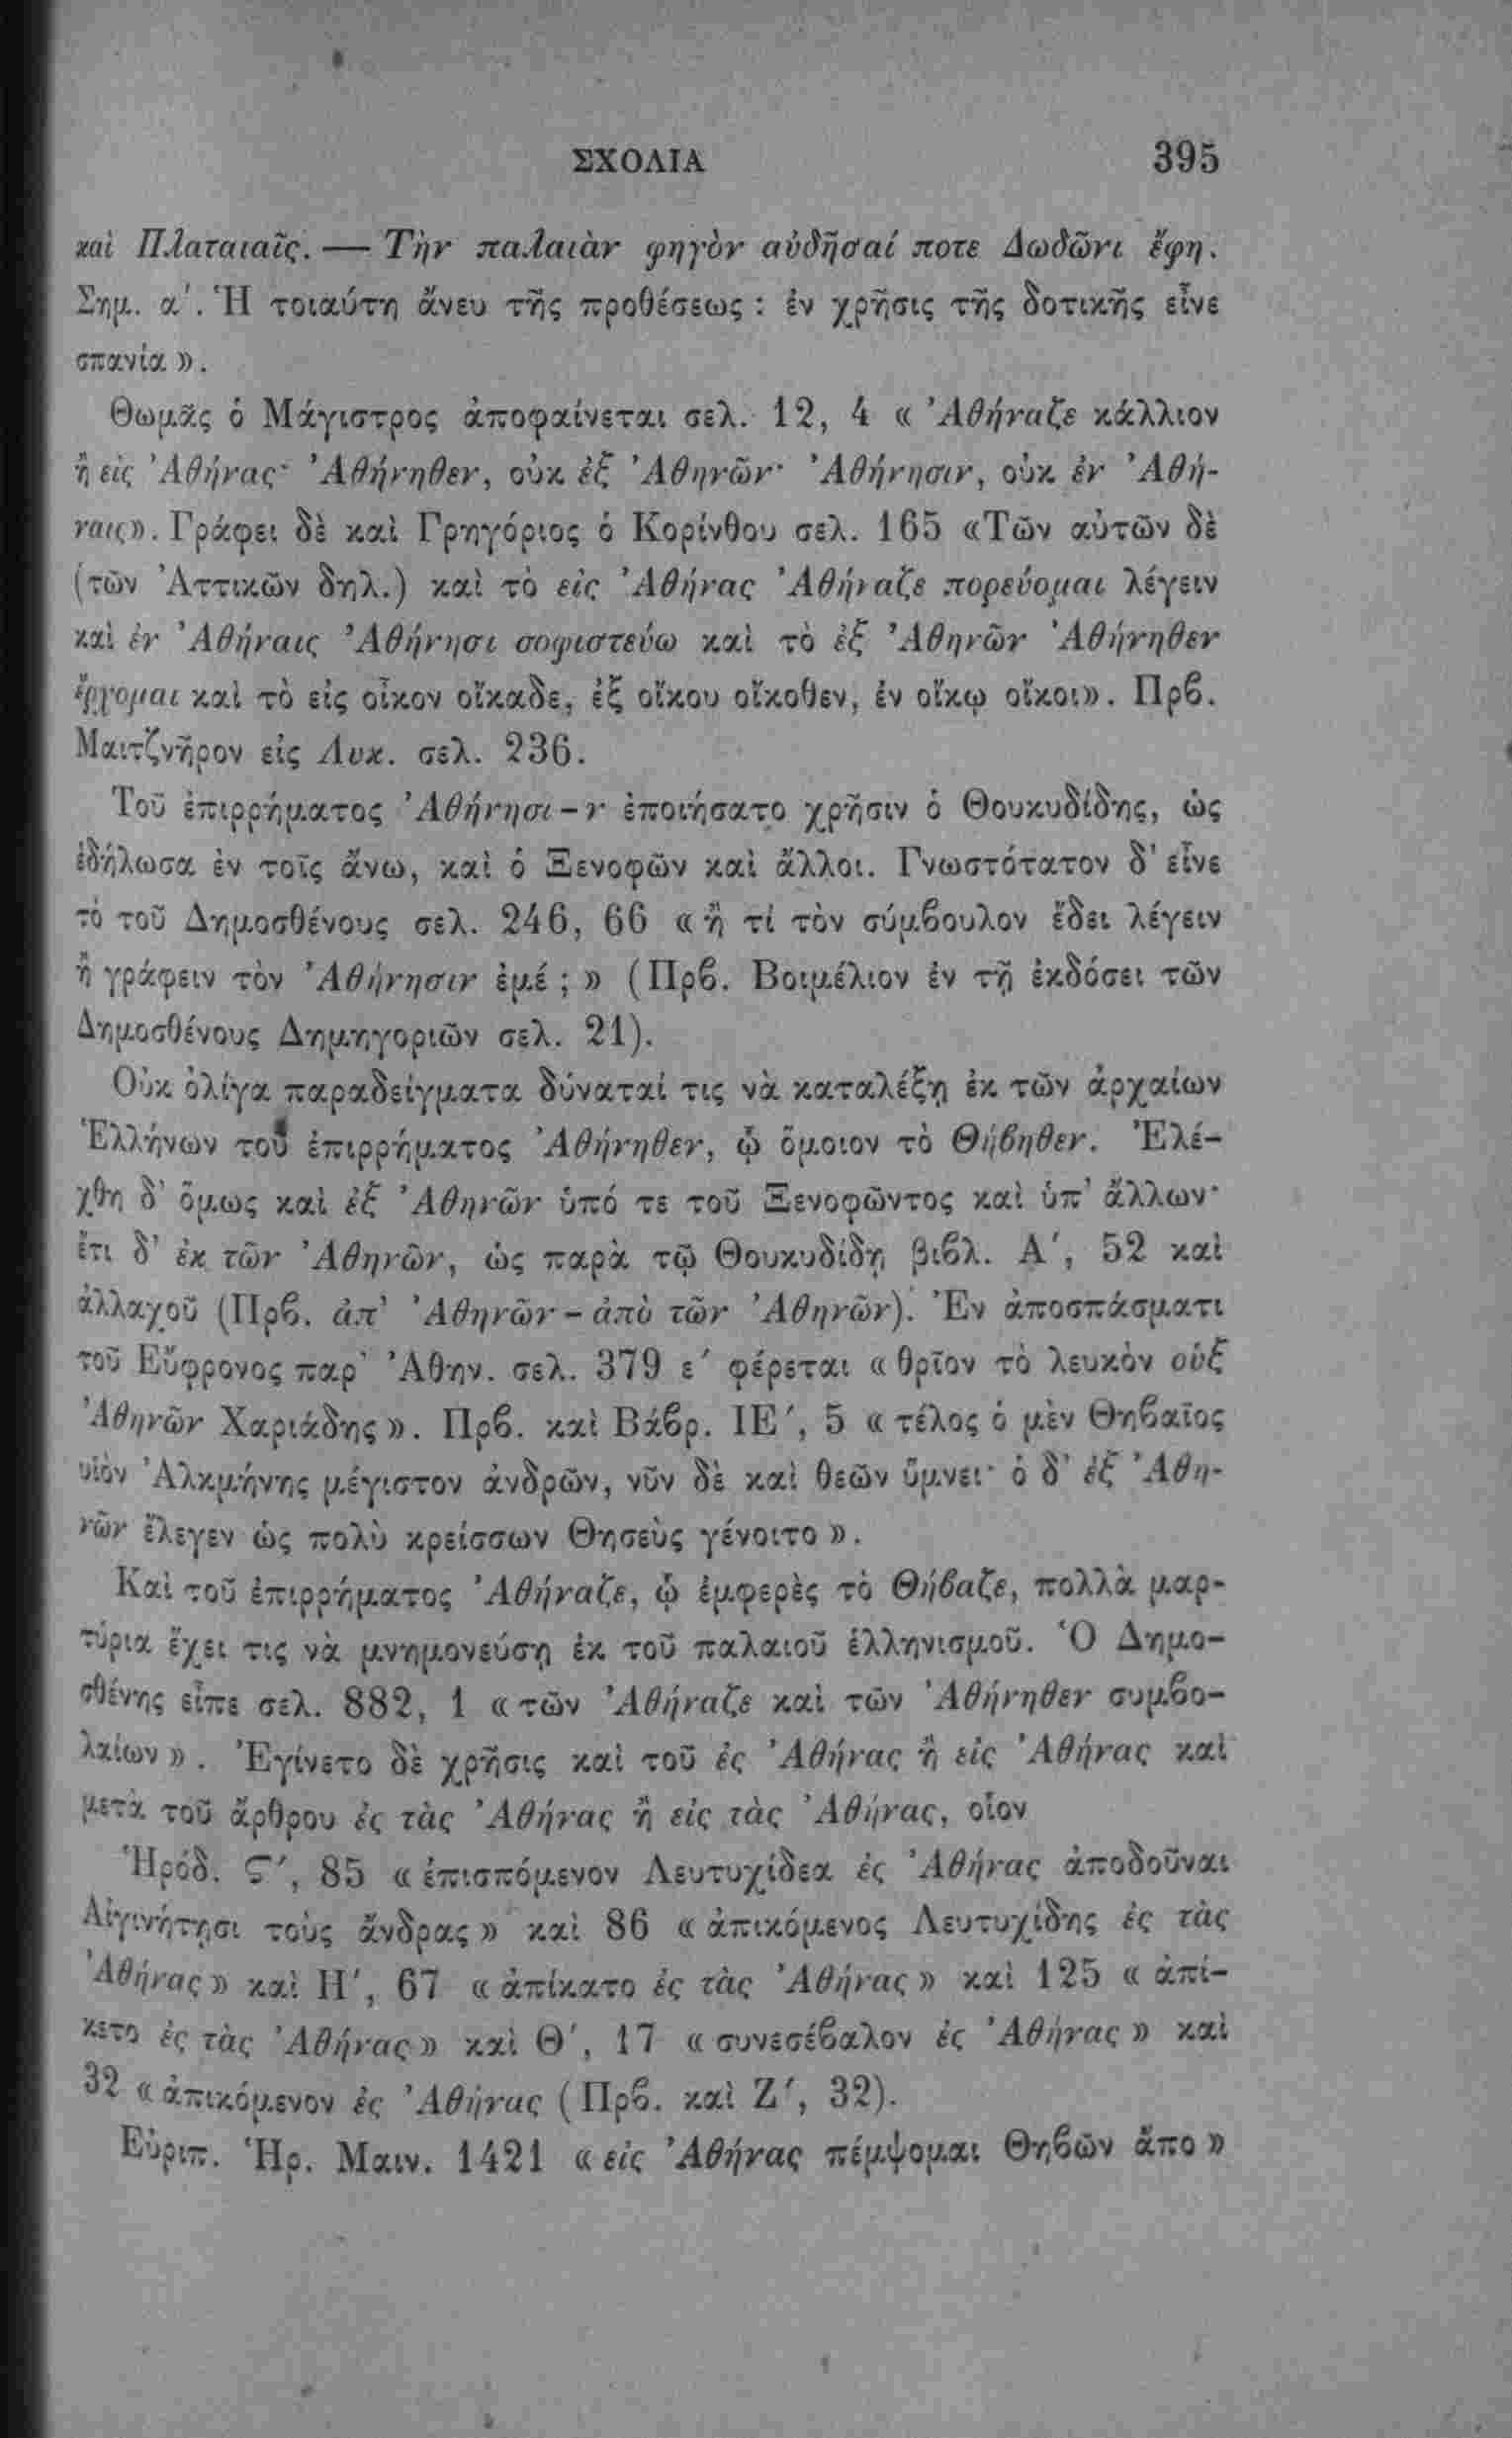 ΣΧΟΛΙΑ 395
καὶ Πλαταιαῖς. — Τὴν παλαιὰν φηγὸν αὐδῆσαί ποτε Δωδῶνι ἔφη.
Σημ. α΄. Ἡ τοιαύτη ἄνευ τῆς προθέσεως : ἐν χρῆσις τῆς δοτικῆς εἶνε
σπανία ».
Θωμᾶς ὁ Μάγιστρος ἀποφαίνεται σελ. 12, 4 « Ἀθήναζε κάλλιον
ἢ εἰς Ἀθήνας· Ἀθήνηθεν, οὐκ ἐξ Ἀθηνῶν· Ἀθήνησιν, οὐκ ἐν Ἀθή-
ναις». Γράφει δὲ καὶ Γρηγόριος ὁ Κορίνθου σελ. 165 «Τῶν αὐτῶν δὲ
(τῶν Ἀττικῶν δηλ.) καὶ τὸ εἰς Ἀθήνας Ἀθήναζε πορεύομαι λέγειν
καὶ ἐν Ἀθήναις Ἀθήνησι σοφιστεύω καὶ τὸ ἐξ Ἀθηνῶν Ἀθήνηθεν
ἔρχομαι καὶ τὸ εἰς οἶκον οἴκαδε, ἐξ οἴκου οἴκοθεν, ἐν οἴκῳ οἴκοι». Πρβ.
Μαιτζνῆρον εἰς Λυκ. σελ. 236.
Τοῦ ἐπιρρήματος Ἀθήνησι – ν ἐποιήσατο χρῆσιν ὁ Θουκυδίδης, ὡς
ἐδήλωσα ἐν τοῖς ἄνω, καὶ ὁ Ξενοφῶν καὶ ἄλλοι. Γνωστότατον δ' εἶνε
τὸ τοῦ Δημοσθένους σελ. 246, 66 « ἢ τί τὸν σύμβουλον ἔδει λέγειν
ἢ γράφειν τὸν Ἀθήνησιν ἐμέ ; » (Πρβ. Βοιμέλιον ἐν τῇ ἐκδόσει τῶν
Δημοσθένους Δημηγοριῶν σελ. 21).
Οὐκ ὀλίγα παραδείγματα δύναταί τις νὰ καταλέξῃ ἐκ τῶν ἀρχαίων
Ἑλλήνων τοῦ ἐπιρρήματος Ἀθήνηθεν, ᾧ ὅμοιον τὸ Θήβηθεν. Ἐλέ-
χθη δ' ὅμως καὶ ἐξ Ἀθηνῶν ὑπό τε τοῦ Ξενοφῶντος καὶ ὑπ' ἄλλων·
ἔτι δ' ἐκ τῶν Ἀθηνῶν, ὡς παρὰ τῷ Θουκυδίδῃ βιβλ. Α΄, 52 καὶ
ἀλλαχοῦ (Πρβ. ἀπ' Ἀθηνῶν – ἀπὸ τῶν Ἀθηνῶν). Ἐν ἀποσπάσματι
τοῦ Εὔφρονος παρ' Ἀθην. σελ. 379 ε΄ φέρεται « θρῖον τὸ λευκὸν οὑξ
Ἀθηνῶν Χαριάδης ». Πρβ. καὶ Βάβρ. ΙΕ΄, 5 « τέλος ὁ μὲν Θηβαῖος
υἱὸν Ἀλκμήνης μέγιστον ἀνδρῶν, νῦν δὲ καὶ θεῶν ὕμνει· ὁ δ' ἐξ Ἀθη-
νῶν ἔλεγεν ὡς πολὺ κρείσσων Θησεὺς γένοιτο ».
Καὶ τοῦ ἐπιρρήματος Ἀθήναζε, ᾧ ἐμφερὲς τὸ Θήβαζε, πολλὰ μαρ-
τύρια ἔχει τις νὰ μνημονεύσῃ ἐκ τοῦ παλαιοῦ ἑλληνισμοῦ. Ὁ Δημο-
σθένης εἶπε σελ. 882, 1 « τῶν Ἀθήναζε καὶ τῶν Ἀθήνηθεν συμβο-
λαίων » . Ἐγίνετο δὲ χρῆσις καὶ τοῦ ἐς Ἀθήνας ἢ εἰς Ἀθήνας καὶ
μετὰ τοῦ ἄρθρου ἐς τὰς Ἀθήνας ἢ εἰς τὰς Ἀθήνας, οἷον
Ἡρόδ. Ϛ΄, 85 « ἐπισπόμενον Λευτυχίδεα ἐς Ἀθήνας ἀποδοῦναι
Αἰγινήτῃσι τοὺς ἄνδρας » καὶ 86 « ἀπικόμενος Λευτυχίδης ἐς τὰς
Ἀθήνας » καὶ Η΄, 67 « ἀπίκατο ἐς τὰς Ἀθήνας » καὶ 125 « ἀπί-
κετο ἐς τὰς Ἀθήνας » καὶ Θ΄, 17 « συνεσέβαλον ἐς Ἀθήνας » καὶ
32 « ἀπικόμενον ἐς Ἀθήνας (Πρβ. καὶ Ζ΄, 32).
Εὐριπ. Ἡρ. Μαιν. 1421 « εἰς Ἀθήνας πέμψομαι Θηβῶν ἄπο »